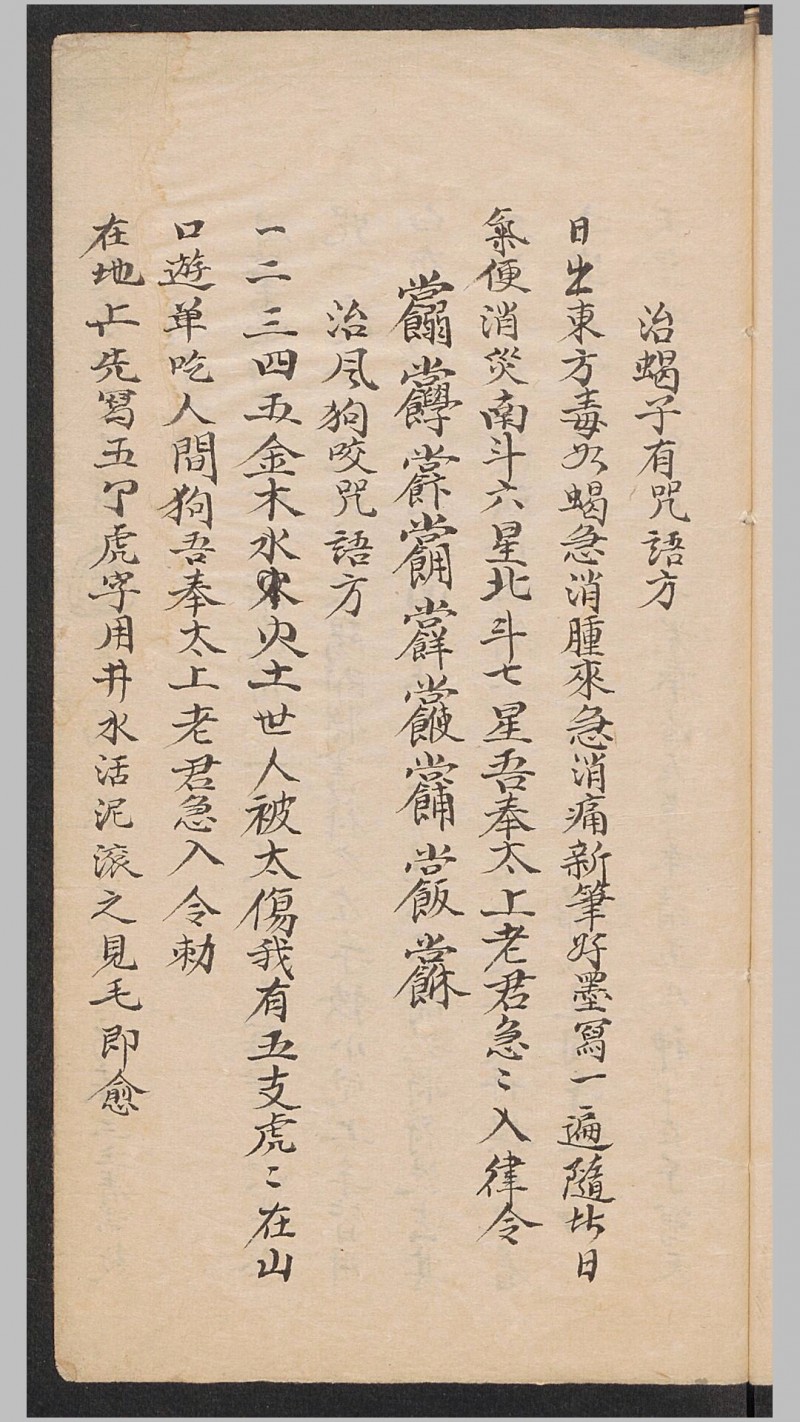 治蝎子有咒語方
日出東方毒如蝎急消腫來急消痛新筆好墨寫一遍隨此日
氣便消災南斗六星北斗七星吾奉太上老君急〻入律令
治风狗咬咒語方
一二三四五金木水火土世人被太傷我有五支虎〻在山
口遊单吃人間狗吾奉太上老君急入令勅
在地上先寫五个虎字用井水活泥滚之見毛即愈